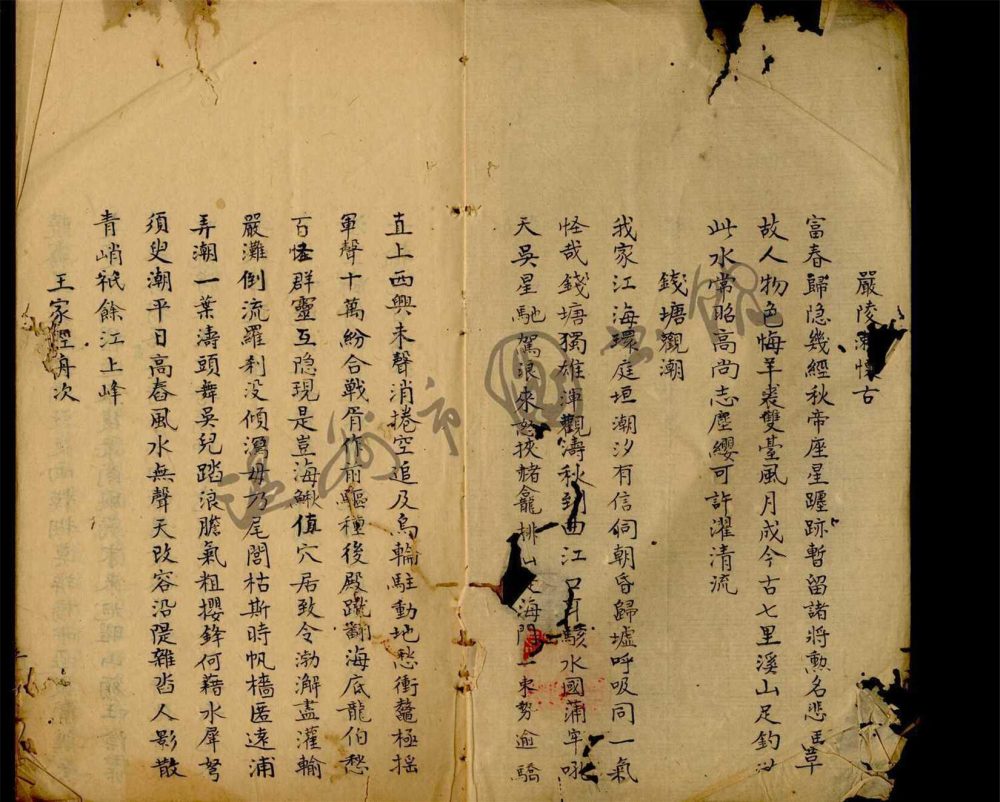 嚴陵灘懷古
富春歸隐幾經秋帝座星躔跡暫留諸將勲名悲馬革
故人物色悔羊裘雙臺風月成今古七里溪山足釣
此水常昭高尚志塵纓可許濯清流
錢塘觀潮
我家江海環庭垣潮汐有信伺朝昏歸墟呼吸同一氣
怪哉錢塘獨雄渾觀濤秋到曲江駭水國蒲牢吼
天吳星馳駕浪來怒挾赭龕排山海門一束勢逾驕
直上西興未聲消捲空追及烏輪駐動地愁衝鼇極摇
軍聲十萬紛合戰胥作前驅種後殿蹴翻海底龍伯愁
百怪群靈互隐現是豈海鰍值穴居致令渤澥盡灌輸
嚴灘倒流羅刹没傾瀉毋乃尾閭枯斯時帆檣匿遠浦
弄潮一葉濤頭舞吳兒踏浪膽氣粗攖鋒何藉水犀弩
須臾潮平日高舂風水無聲天改容沿隄雜沓人影散
青峭衹餘江上峰
王家涇舟次
温州市圖書館